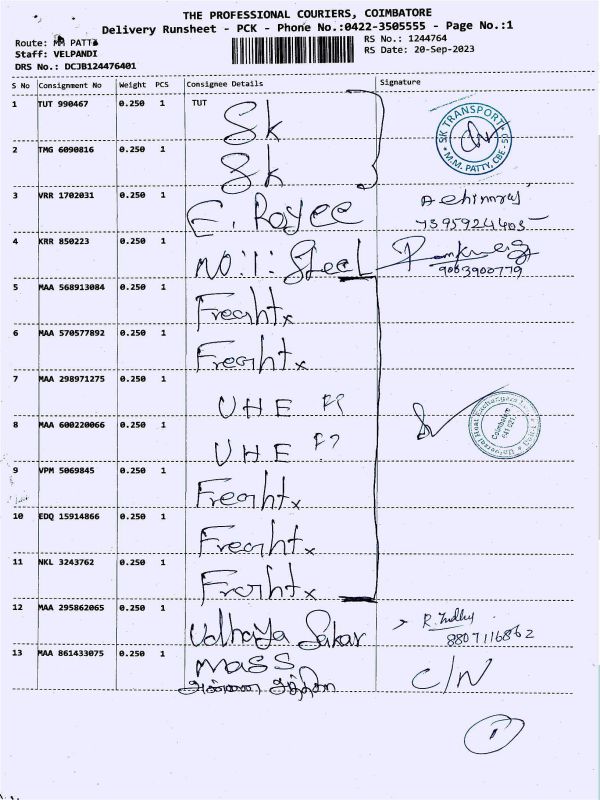 THE PROFESSIONAL COURIERS, COIMBATORE
Delivery Runsheet - PCK - Phone No.:0422-3505555 - Page No.:1
Route: MM PATTI
RS No.: 1244764
Staff: VELPANDI
RS Date: 20-Sep-2023
DRS No.: DCJB124476401
S No Consignment No Weight PCS Consignee Details Signature
1 TUT 990467 0.250 1 TUT Sk
SK TRANSPORT M.M. PATTY, CBE
2 TMG 6090816 0.250 1 Sk
3 VRR 1702031 0.250 1 E. Royee
7395924405
4 KRR 850223 0.250 1 No:1: Steel
9063900779
5 MAA 568913084 0.250 1 Freahtx
6 MAA 570577892 0.250 1 Freahtx
7 MAA 298971275 0.250 1 UHE
Universal Heat Exchangers Coimbatore 641 021
8 MAA 600220066 0.250 1 UHE
9 VPM 5069845 0.250 1 Freahtx
10 EDQ 15914866 0.250 1 Freahtx
11 NKL 3243762 0.250 1 Frahtx
12 MAA 295862065 0.250 1 Udhaya Sakar
8807116862
13 MAA 861433075 0.250 1 Mass C/N
அன்னை
1